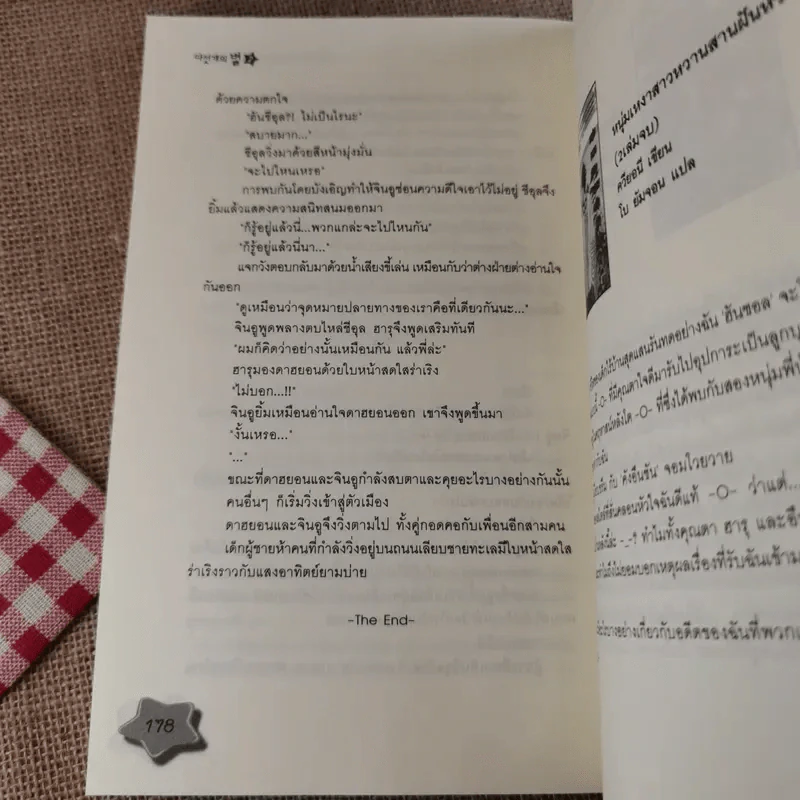 다섯개의 별 2
ด้วยความตกใจ
"ฮันชีอุล?! ไม่เป็นไรนะ"
"สบายมาก..."
ชีอุลวิ่งมาด้วยสีหน้ามุ่งมั่น
"จะไปไหนเหรอ"
การพบกันโดยบังเอิญทำให้จินอูซ่อนความดีใจเอาไว้ไม่อยู่ ชีอุลจึง
ยิ้มแล้วแสดงความสนิทสนมออกมา
"ก็รู้อยู่แล้วนี่...พวกแกล่ะจะไปไหนกัน"
"ก็รู้อยู่แล้วนี่นา..."
แจกวังตอบกลับมาด้วยน้ำเสียงขี้เล่น เหมือนกับว่าต่างฝ่ายต่างอ่านใจ
กันออก
"ดูเหมือนว่าจุดหมายปลายทางของเราคือที่เดียวกันนะ..."
จินอูพูดพลางตบไหล่ชีอุล ฮารุจึงพูดเสริมทันที
"ผมก็คิดว่าอย่างนั้นเหมือนกัน แล้วพี่ล่ะ"
ฮารุมองดาฮยอนด้วยใบหน้าสดใสร่าเริง
"ไม่บอก...!!"
จินอูยิ้มเหมือนอ่านใจดาฮยอนออก เขาจึงพูดขึ้นมา
"งั้นเหรอ..."
"..."
ขณะที่ดาฮยอนและจินอูกำลังสบตาและคุยอะไรบางอย่างกันนั้น
คนอื่นๆ ก็เริ่มวิ่งเข้าสู่ตัวเมือง
ดาฮยอนและจินอูจึงวิ่งตามไป ทั้งคู่กอดคอกับเพื่อนอีกสามคน
เด็กผู้ชายห้าคนที่กำลังวิ่งอยู่บนถนนเลียบชายทะเลมีใบหน้าสดใส
ร่าเริงราวกับแสงอาทิตย์ยามบ่าย
-The End-
178
หนุ่มเหงาสาวหวานสานฝันหัว
(2เล่มจบ)
ควียอนี เขียน
โบ ยัมจอน แปล
ไร้บ้านสุดแสนรันทดอย่างฉัน 'ฮันซอล' จะ
-O- ที่มีคุณตาใจดีมารับไปอุปการะเป็นลูกบุ
-O- ที่ซึ่งได้พบกับสองหนุ่มพี่น้
กับ 'คังอึนชัน' จอมโวยวาย
คลอนหัวใจฉันดีแท้ -O- ว่าแต่...
-_-? ทำไมทั้งคุณตา ฮารุ และอึ
ไม่ยอมบอกเหตุผลเรื่องที่รับฉันเข้าม
บางอย่างเกี่ยวกับอดีตของฉันที่พวก